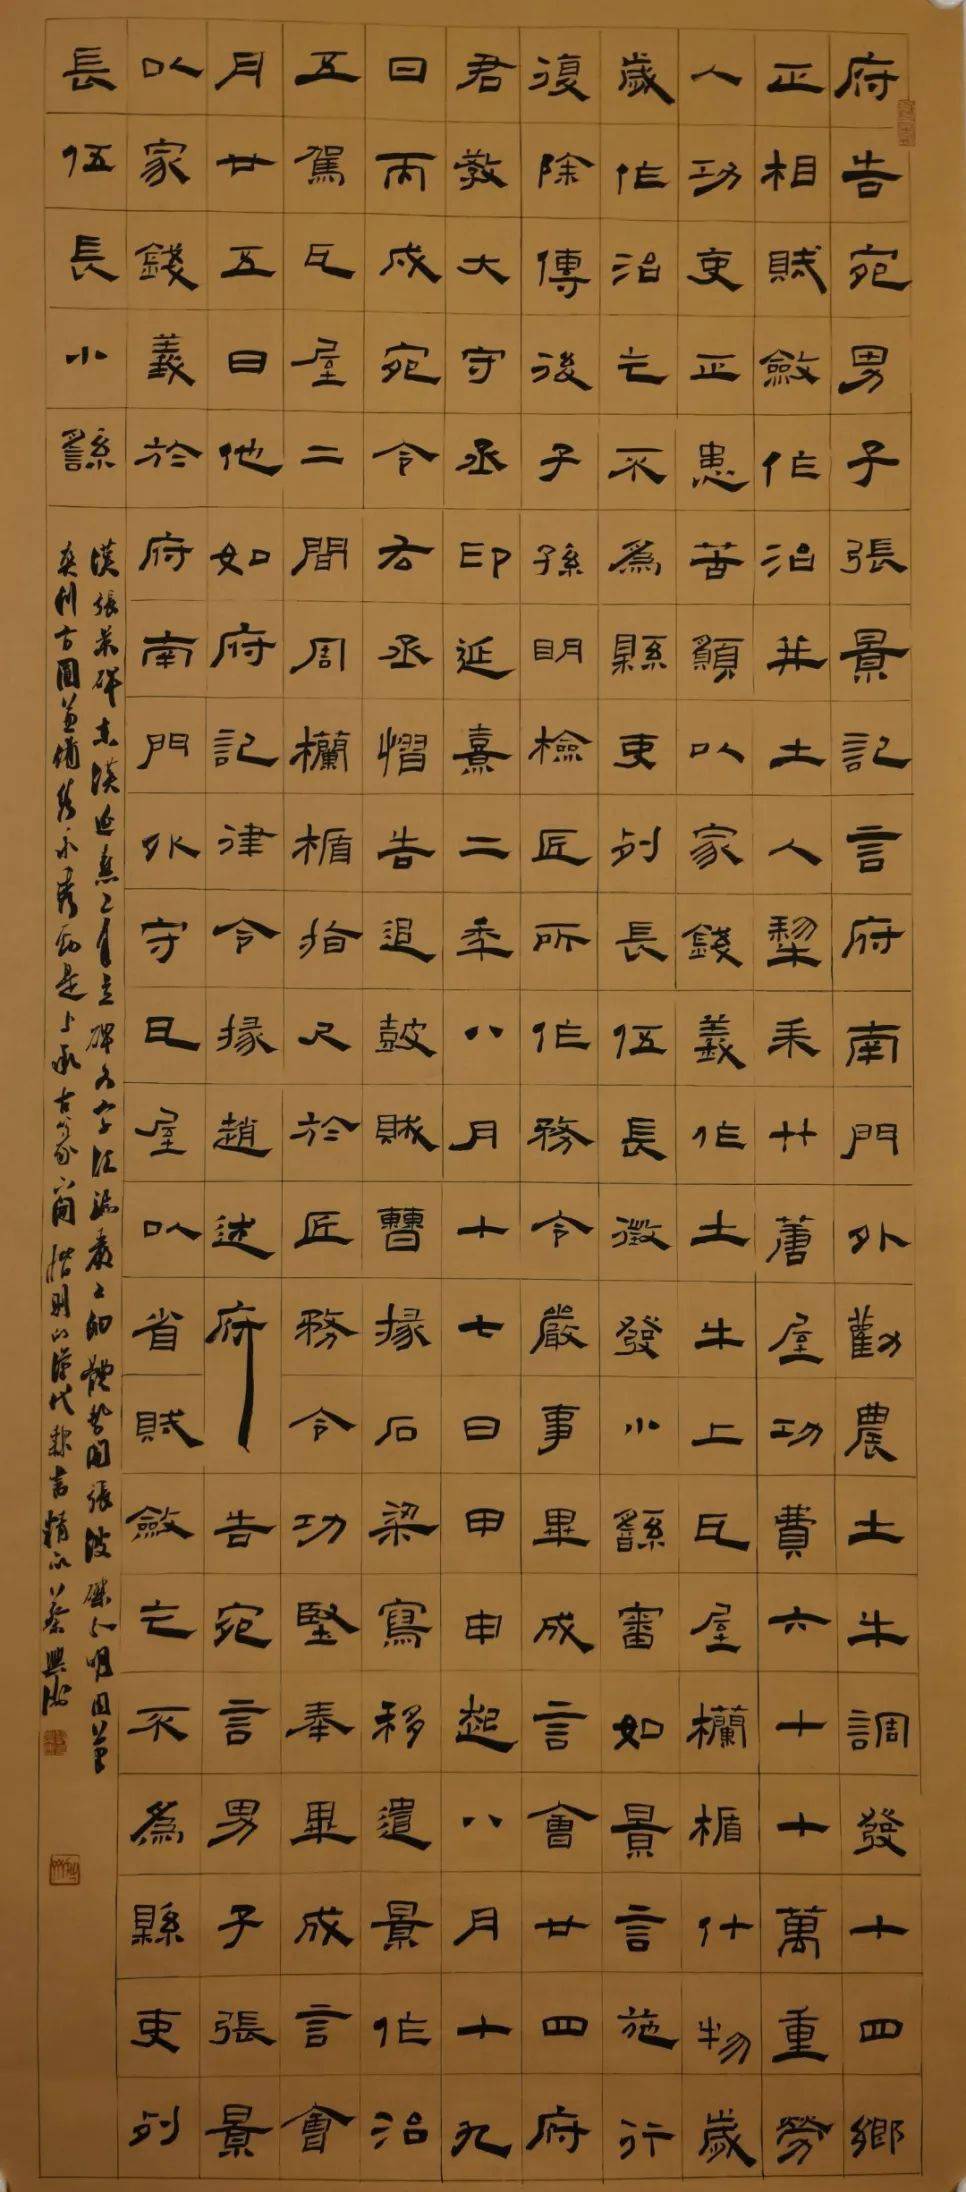 府告宛男子張景記言府南門外勸農土牛調發十四鄉
正相賦斂作治并土人犂耒廿蓎屋功費六十十萬重勞
人功吏正患苦願以家錢義作土牛上瓦屋欄楯什物歲
歲作治亡不爲縣吏列長伍長徵發小繇審如景言施行
復除傳後子孫明檢匠所作務令嚴事畢成言會廿四府
君教大守丞印延熹二年八月十七日甲申起八月十九
日丙戌宛令右丞慴告追鼓賊曹掾石梁寫移遣景作治
五駕瓦屋二間周欄楯拾尺於匠務令功堅奉畢成言會
月廿五日他如府記律令掾趙述府告宛言男子張景
以家錢義於府南門外守瓦屋以省賦斂亡不爲縣吏列
長伍長小繇
漢張景碑漢延熹二立碑文字體勢開張波磔分明因筆
方圓兼備秀勁是上承古篆漢代隸書精品蔡興